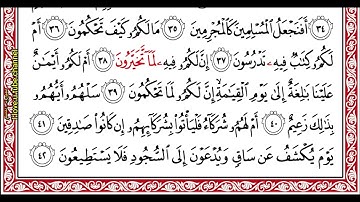 ٣٤ أَفَنَجْعَلُ الْمُسْلِمِينَ كَالْمُجْرِمِينَ ٣٥ مَا لَكُمْ كَيْفَ تَحْكُمُونَ ٣٦ أَمْ
لَكُمْ كِتَابٌ فِيهِ تَدْرُسُونَ ٣٧ إِنَّ لَكُمْ فِيهِ لَمَا تَخَيَّرُونَ ٣٨ أَمْ لَكُمْ أَيْمَانٌ
عَلَيْنَا بَالِغَةٌ إِلَىٰ يَوْمِ الْقِيَامَةِ إِنَّ لَكُمْ لَمَا تَحْكُمُونَ ٣٩ سَلْهُمْ أَيُّهُمْ
بِذَٰلِكَ زَعِيمٌ ٤٠ أَمْ لَهُمْ شُرَكَاءُ فَلْيَأْتُوا بِشُرَكَائِهِمْ إِنْ كَانُوا صَادِقِينَ ٤١
يَوْمَ يُكْشَفُ عَنْ سَاقٍ وَيُدْعَوْنَ إِلَى السُّجُودِ فَلَا يَسْتَطِيعُونَ ٤٢